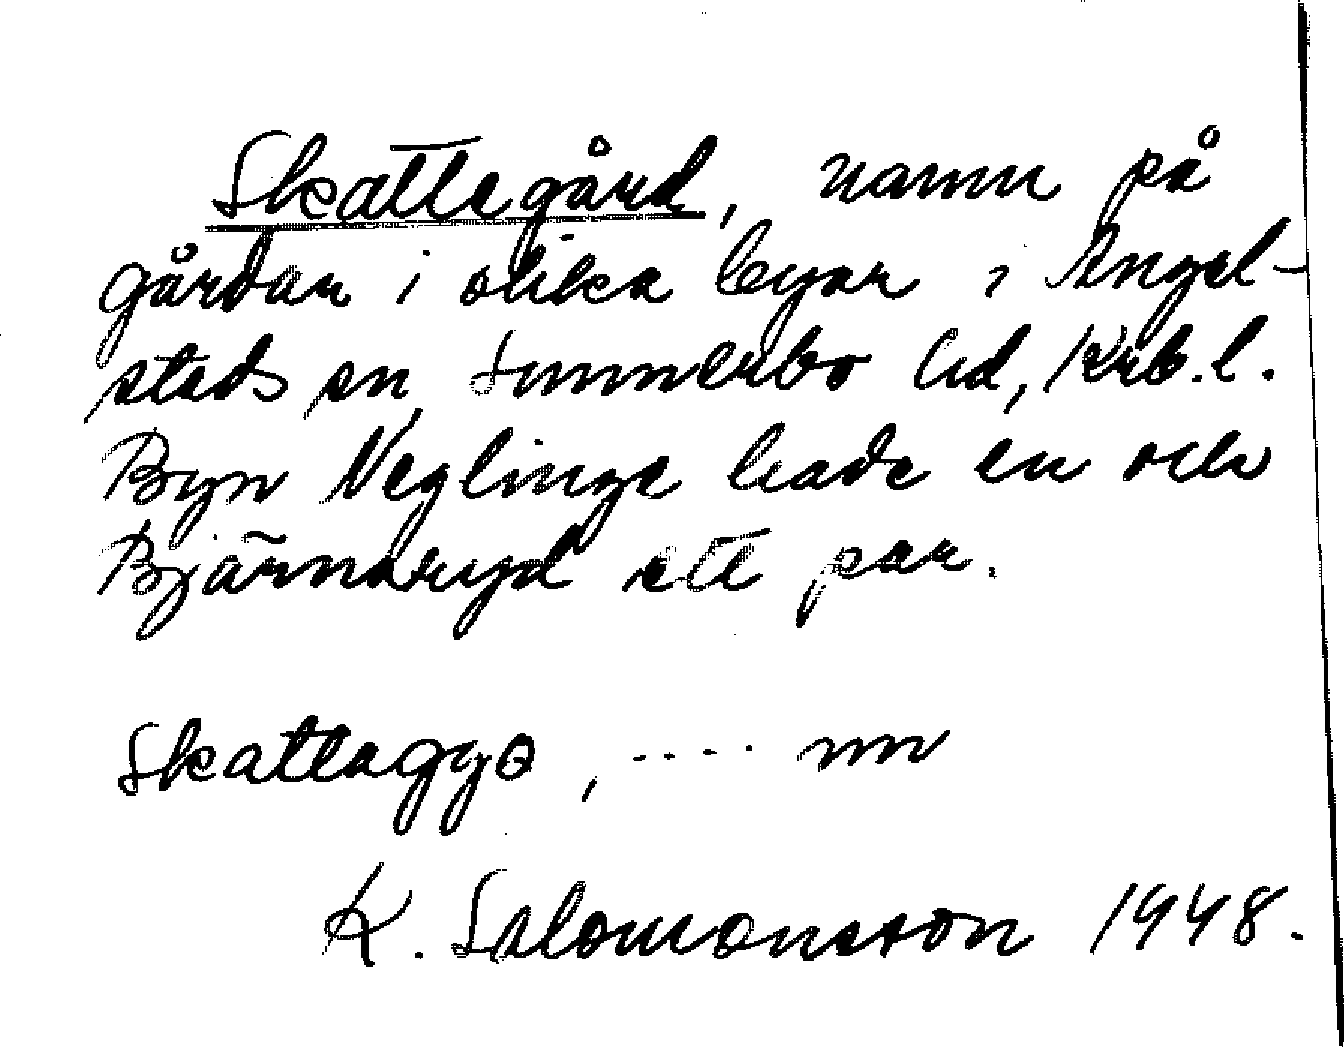 Skattegård, namn på
gårdar i olika byar i Angel-
stads sn, Sunnerbo hd, Krb.l.
Byn Neglinge hade en och
Bjärnaryd ett par.
Skattagys, .... nn
K. Salomonsson 1948.